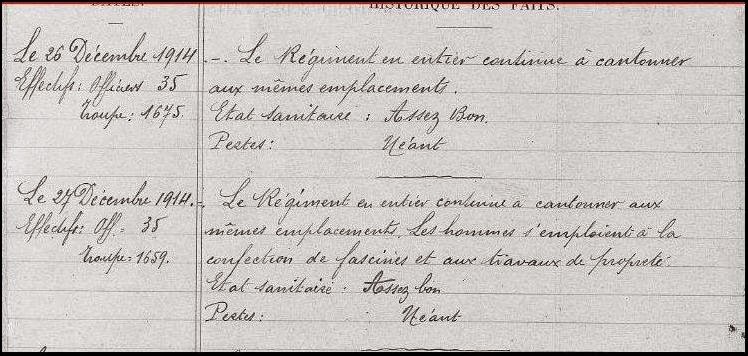 DATES. HISTORIQUE DES FAITS.
Le 26 Décembre 1914 .-. Le Régiment en entier continue à cantonner
Effectifs: Officiers 35 aux mêmes emplacements.
Troupe: 1675. Etat sanitaire : Assez Bon.
Pertes: Néant
Le 27 Décembre 1914.-. Le Régiment en entier continue à cantonner aux
Effectifs: Off. = 35 mêmes emplacements. Les hommes s'emploient à la
Troupe: 1659. confection de fascines et aux travaux de propreté.
Etat sanitaire : Assez bon
Pertes: Néant